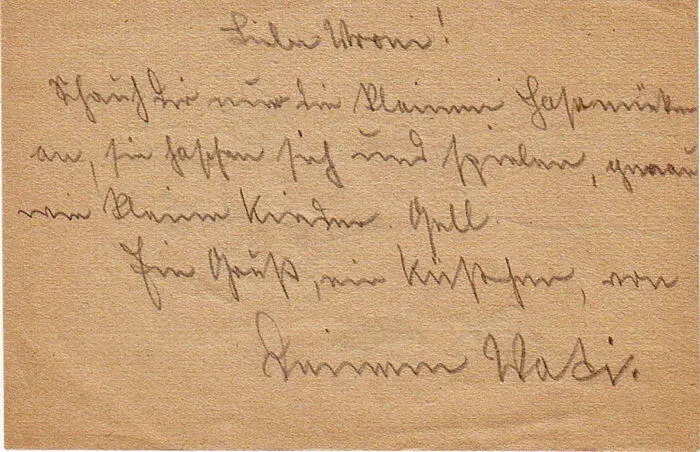 Liebe Vroni!
Schau Dir nur die kleinen Hasen
an, sie haschen sich und spielen, genau
wie kleine Kinder. Gell.
Ein Gruß, ein Küßchen, von
Deinem